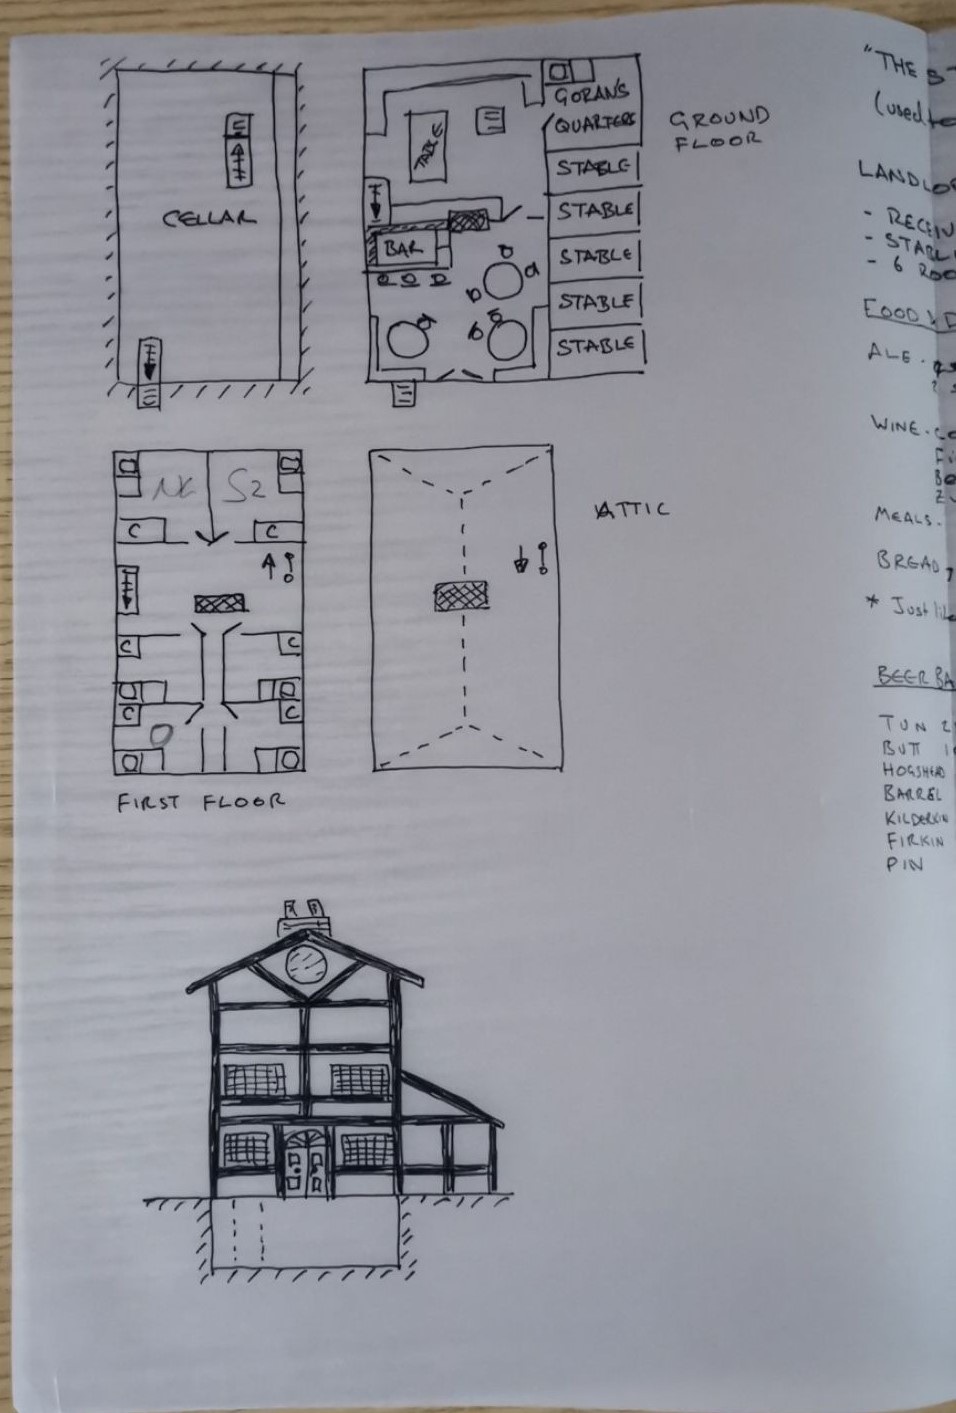 CELLAR
GORAN'S
QUARTERS
STABLE
STABLE
STABLE
STABLE
STABLE
TABLE
BAR
GROUND
FLOOR
S2
C
C
C
C
C
C
FIRST FLOOR
ATTIC
"THE S
(used to
LANDLOR
- RECEIV
- STABL
- 6 ROO
FOOD & D
ALE -
WINE -
MEALS -
BREAD,
* Just lik
BEER BA
TUN 2
BUTT 1
HOGSHEAD
BARREL
KILDERKIN
FIRKIN
PIN